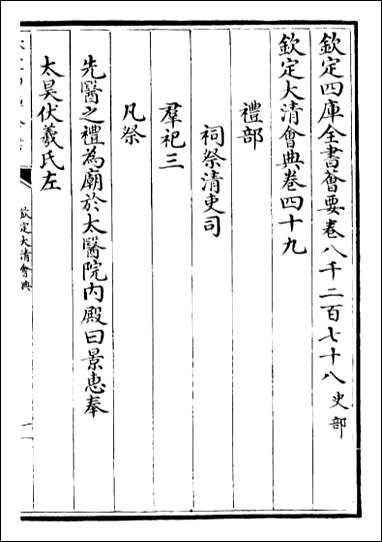 欽定四庫全書薈要卷八千二百七十八 史部
欽定大清會典卷四十九
禮部
祠祭清吏司
羣祀三
凡祭
先醫之禮為廟於太醫院内殿曰景惠奉
太昊伏羲氏左
欽定大清會典